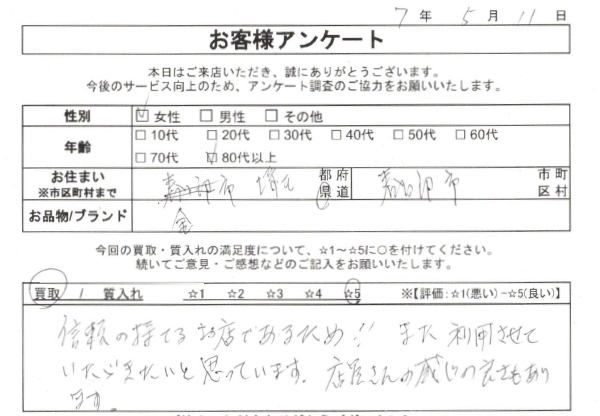 7年 5月 11日
お客様アンケート
本日はご来店いただき、誠にありがとうございます。
今後のサービス向上のため、アンケート調査のご協力をお願いいたします。
性別 ☑ 女性 □ 男性 □ その他
年齢 □ 10代 □ 20代 □ 30代 □ 40代 □ 50代 □ 60代
□ 70代 ☑ 80代以上
お住まい 埼玉 都府 市町
※市区町村まで 県道 市 区村
お品物/ブランド 金
今回の買取・質入れの満足度について、☆1～☆5に○を付けてください。
続いてご意見・ご感想などのご記入をお願いいたします。
買取 / 質入れ ☆1 ☆2 ☆3 ☆4 ☆5 ※【評価：☆1(悪い)－☆5(良い)】
信頼の持てるお店であるため!! また利用させて
いただきたいと思っています。店員さんの感じの良さもあり
ます。